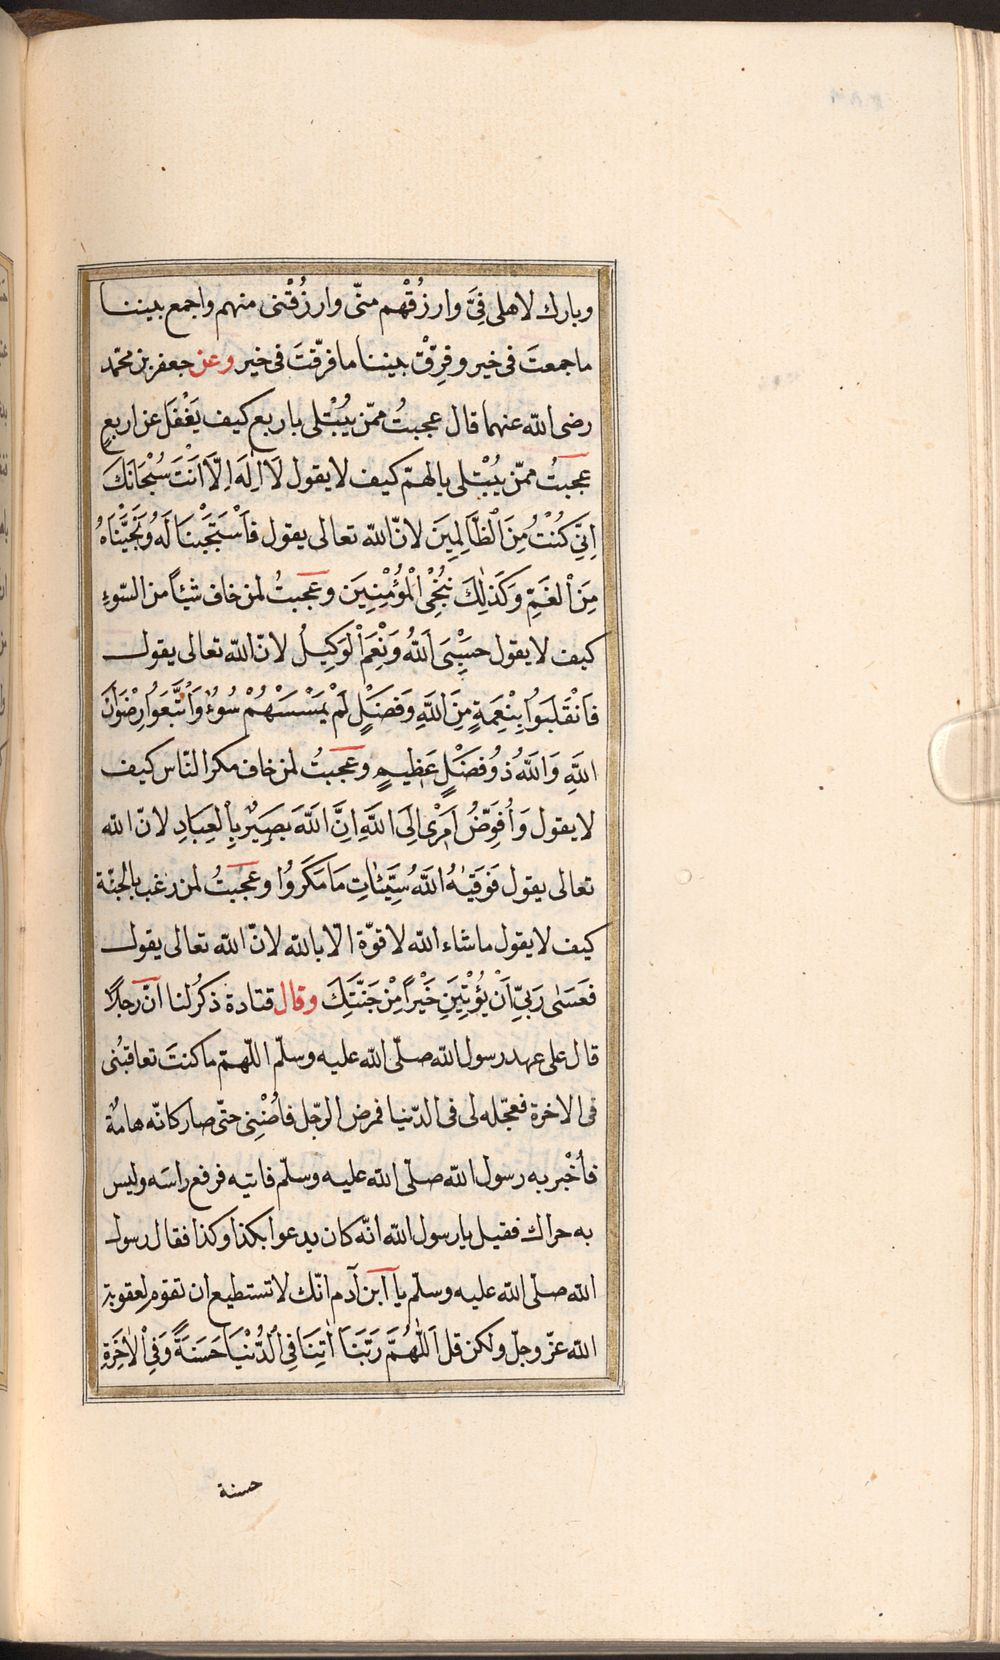 وبارك لاهلى فِىَّ وارزُقْهم منّى وارزُقْنى منهم واجمع بيننا
ما جمعتَ فى خير وفرِّقْ بيننا ما فرّقتَ فى خير وعن جعفر بن محمّد
رضى الله عنهما قال عجبتُ ممّن يُبْتلى باربع كيف يَغْفَل عن اربعٍ
عجبتُ ممّن يُبْتلى بالهمّ كيف لا يقول لَآ اِلٰهَ اِلَّآ اَنْتَ سُبْحَانَكَ
اِنِّى كُنْتُ مِنَ الْظَّالِمِينَ لانّ الله تعالى يقول فَاَسْتَجَبْنَا لَهُ وَنَجَّيْنَاهُ
مِنَ اْلغَمِّ وَكَذٰلِكَ نُنْجِى اْلمُؤْمِنِينَ وعجبتُ لمن خاف شيئاً من السّوء
كيف لا يقول حَسْبِىَ اَللّٰهُ وَنِعْمَ اْلوَكِيلُ لانّ الله تعالى يقول
فَاَنْقَلَبَوُا بِنِعْمَةٍ مِنَ اللّٰهِ وَفَضْلٍ لَمْ يَمْسَسْهُمْ سُوءٌ وَاَتَّبَعَوُا رِضْوَانَ
اللّٰهِ وَاَللّٰهُ ذُوفَضْلٍ عَظِيمٍ وعجبتُ لمن خاف مكر النّاس كيف
لا يقول وَاُفَوِّضُ اَمْرِى اِلَى اَللّٰهِ اِنَّ اَللّٰهَ بَصِيرٌ بِاْلعِبَادِ لانّ الله
تعالى يقول فَوَقَيٰهُ اَللّٰهُ سَيِّئَاتِ مَا مَكَرَوُا وعجبتُ لمن رغب بالجنّة
كيف لا يقول ما شاء الله لا قوّة الّا بالله لانّ الله تعالى يقول
فَعَسٰى رَبِّى اَنْ يُؤْتِيَنِ خَيْراً مِنْ جَنَّتِكَ وقال قتادة ذُكر لنا انّ رجلاً
قال على عهد رسول الله صلّى الله عليه وسلّم اللّهمّ ما كنتَ تعاقبُنى
فى الاخرة فعجّله لى فى الدّنيا فمرض الرّجل فاُضْنِى حتّى صار كانّه هامةٌ
فاُخْبر به رسول الله صلّى الله عليه وسلّم فاتيه فرفع راسَه وليس
به حراك فقيل يا رسول الله انّه كان يدعوا بكذا وكذا فقال رسول
الله صلّى الله عليه وسلّم يا ابن آدم انّك لا تستطيع ان تقوم لعقوبة
الله عزّ وجلّ ولكن قل اَللّٰهُمَّ رَبَّنَا اٰتِنَا فِى اْلدُّنْيَا حَسَنَةً وَفِى اْلاٰخِرَةِ
حسنة